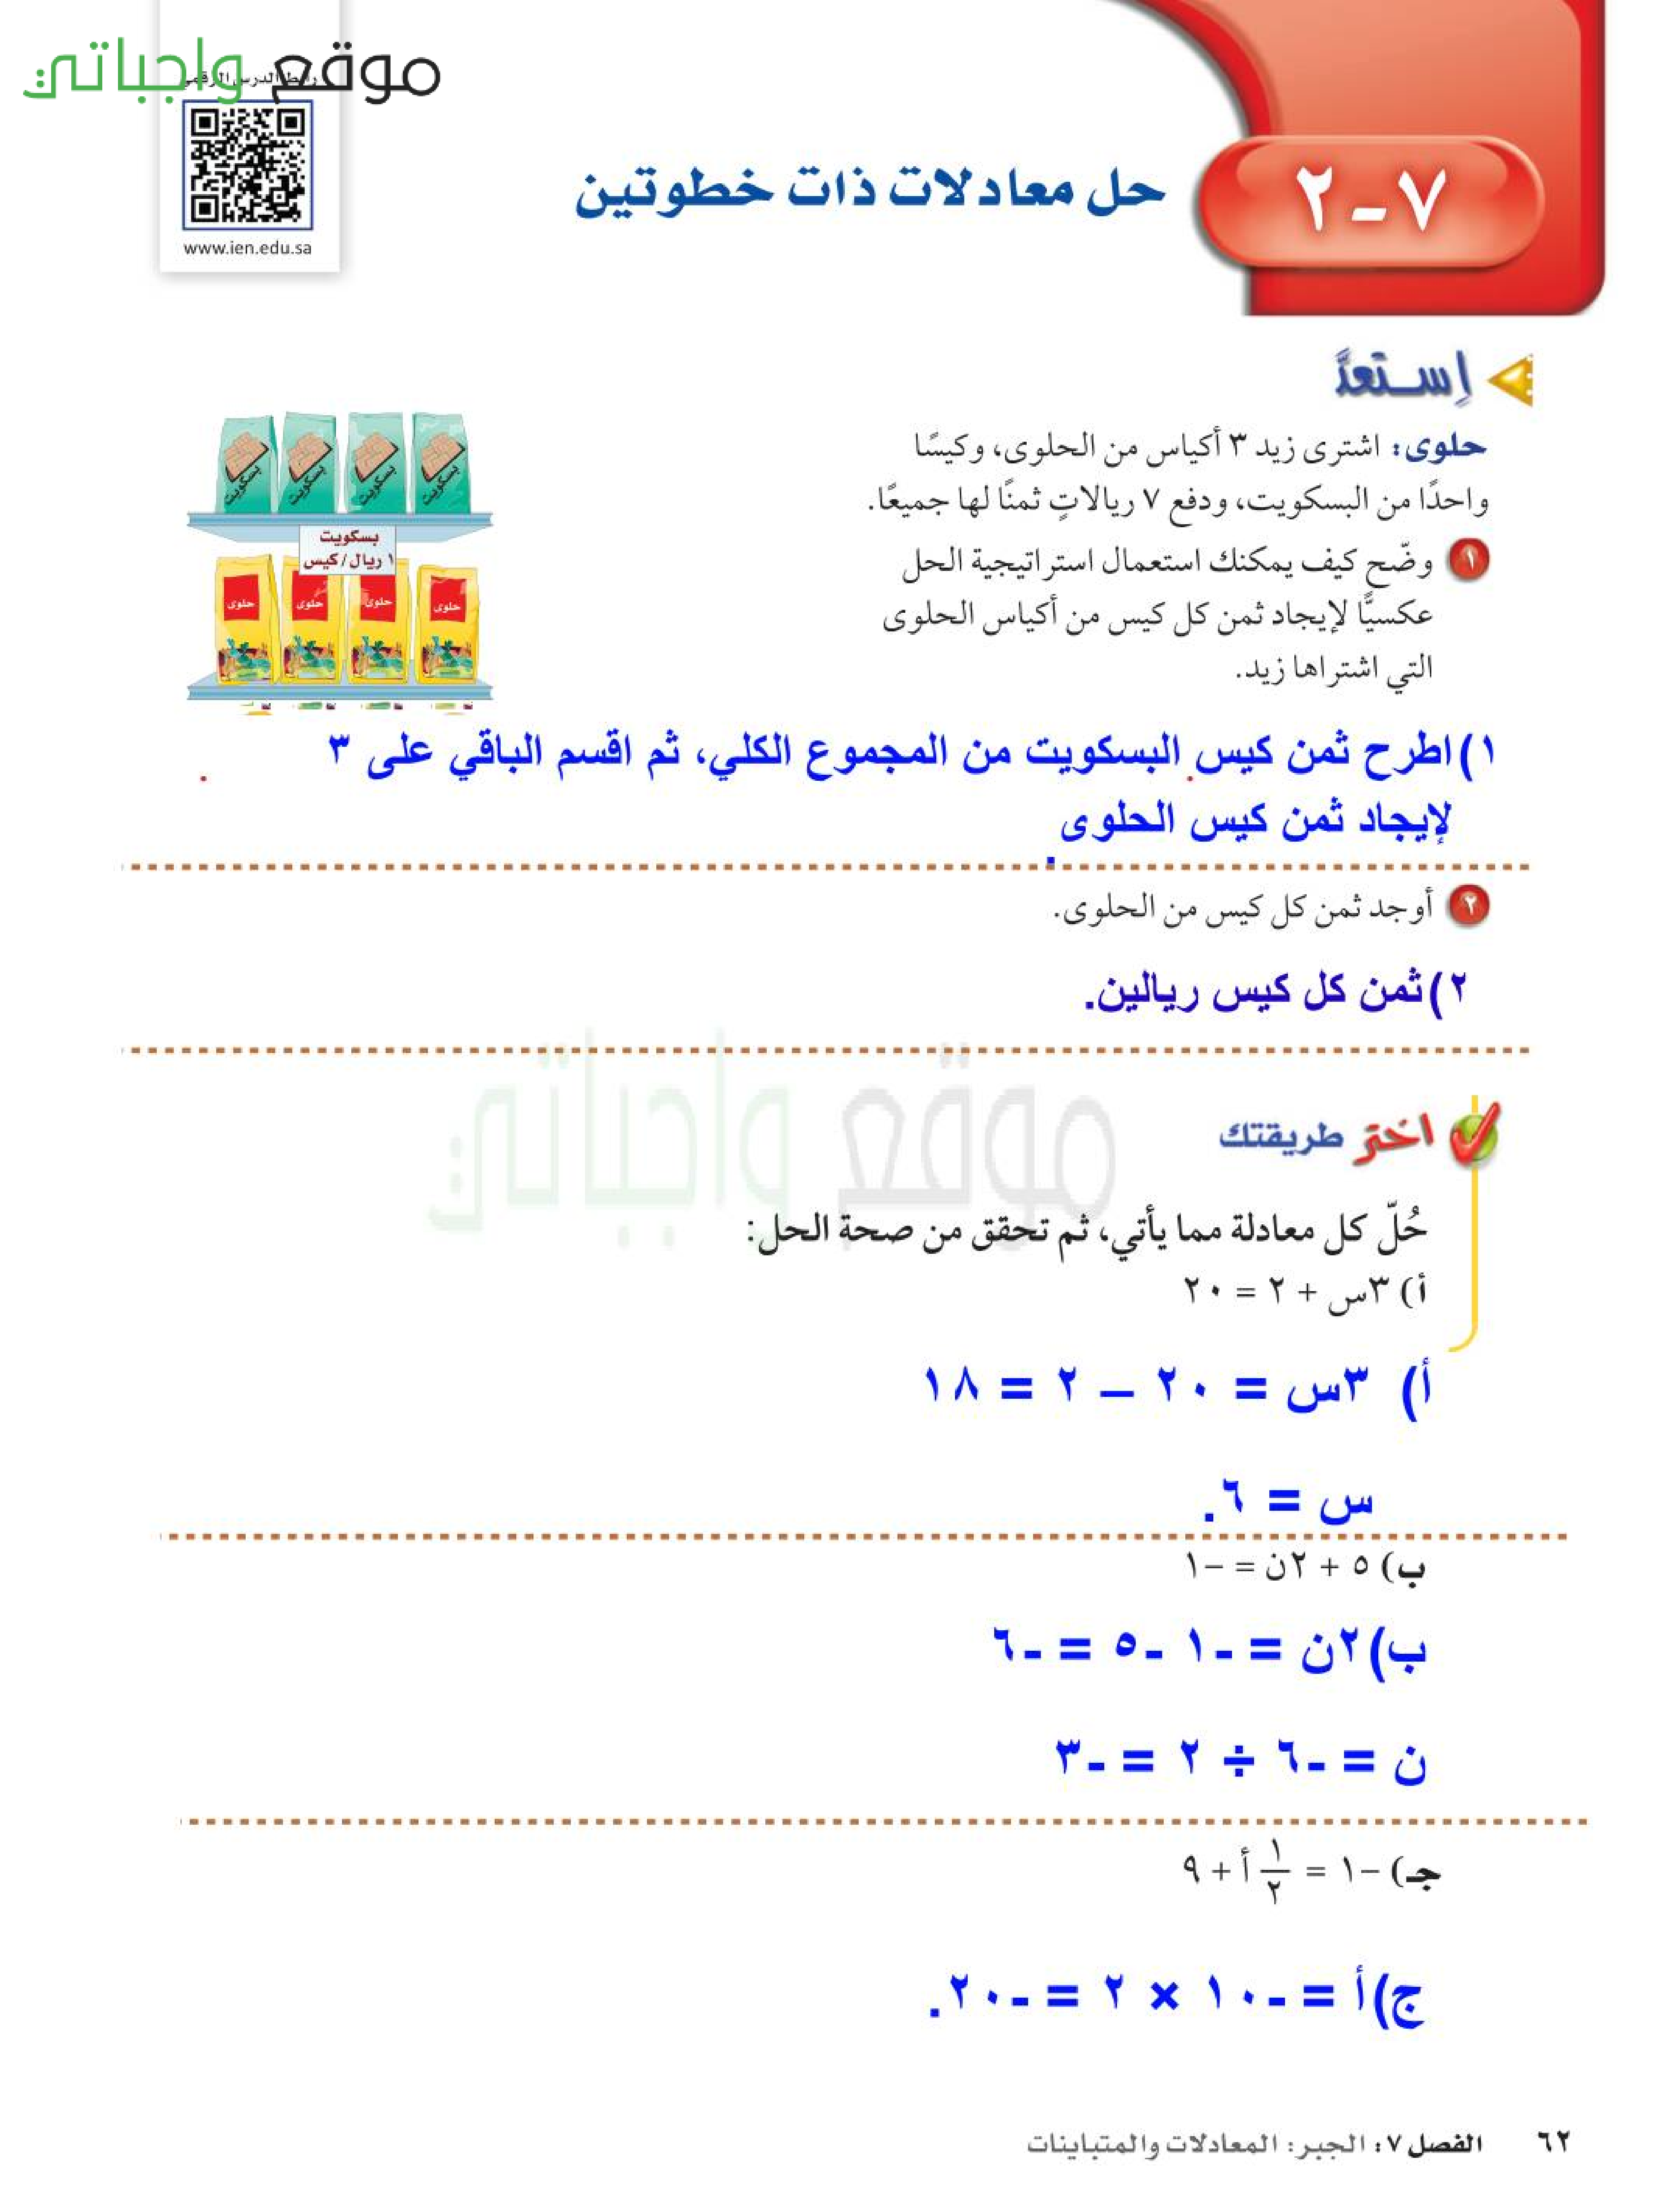 موقع واجباتي
رابط الدرس الرقمي
www.ien.edu.sa
٧-٢
حل معادلات ذات خطوتين
اِستعدَّ
حلوى: اشترى زيد ٣ أكياس من الحلوى، وكيسًا
واحدًا من البسكويت، ودفع ٧ ريالاتٍ ثمنًا لها جميعًا.
١ وضّح كيف يمكنك استعمال استراتيجية الحل
عكسيًّا لإيجاد ثمن كل كيس من أكياس الحلوى
التي اشتراها زيد.
بسكويت بسكويت بسكويت بسكويت
بسكويت
١ ريال/كيس
حلوى حلوى حلوى حلوى
١) اطرح ثمن كيس البسكويت من المجموع الكلي، ثم اقسم الباقي على ٣
لإيجاد ثمن كيس الحلوى.
٢ أوجد ثمن كل كيس من الحلوى.
٢) ثمن كل كيس ريالين.
موقع واجباتي
اختر طريقتك
حُلّ كل معادلة مما يأتي، ثم تحقق من صحة الحل:
أ) ٣س + ٢ = ٢٠
أ) ٣س = ٢٠ – ٢ = ١٨
س = ٦.
ب) ٥ + ٢ن = –١
ب) ٢ن = -١ -٥ = -٦
ن = -٦ ÷ ٢ = -٣
جـ) –١ = ١/٢ أ + ٩
ج) أ = -١٠ × ٢ = -٢٠.
٦٢ الفصل ٧: الجبر: المعادلات والمتباينات